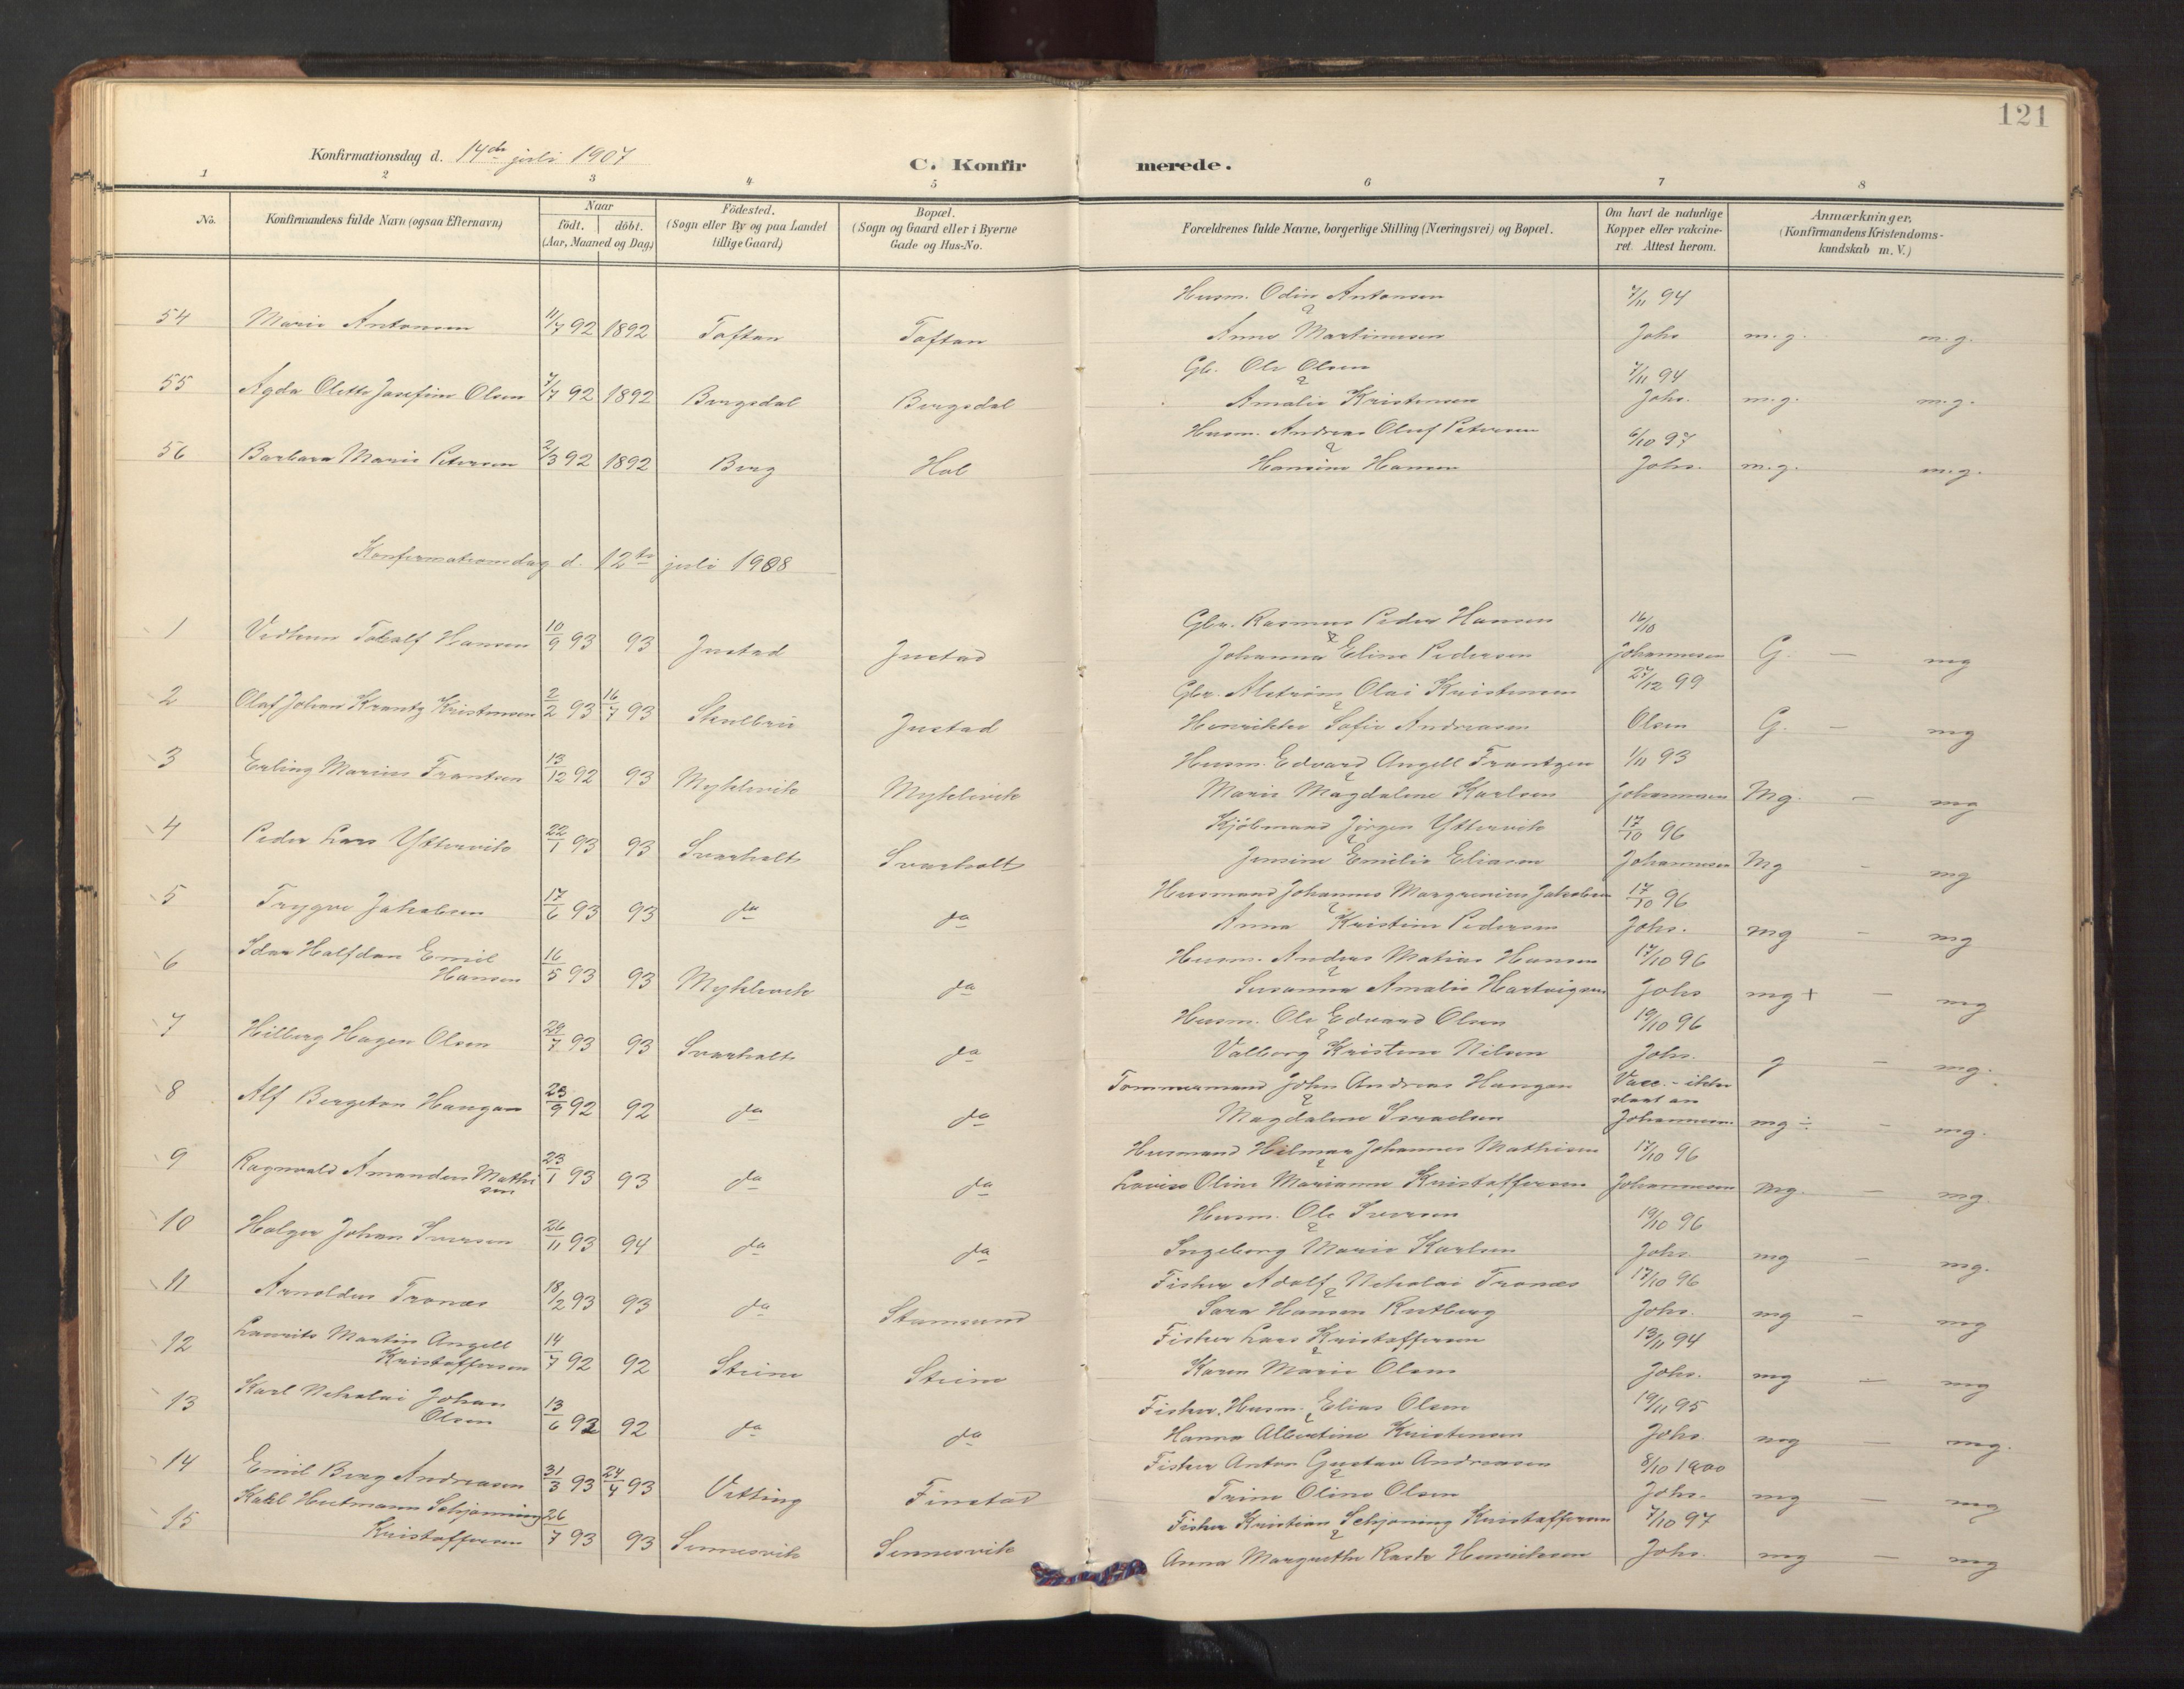 121
Konfirmationsdag d. 14de juli 1907
C. Konfirmerede.
1 2 3 4 5 6 7 8
No. Konfirmandens fulde Navn (ogsaa Efternavn) Naar födt. döbt. (Aar, Maaned og Dag) Födested. (Sogn eller By og paa Landet tillige Gaard) Bopæl. (Sogn og Gaard eller i Byerne Gade og Hus-No. Forældrenes fulde Navne, borgerlige Stilling (Næringsvei) og Bopæl. Om havt de naturlige Kopper eller vakcineret. Attest herom. Anmærkninger. (Konfirmandens Kristendomskundskab m. V.)
Husm. Odin Antonsen 7/11 94
54 Marie Antonsen 11/7 92 1892 Toftan Toftan Anna Martinusen Johs m.g. m.g.
Gb. Ole Olsen 7/11 94
55 Agda Olette Josefine Olsen 7/7 92 1892 Bergsdal Bergsdal Amalie Kristensen Johs. m.g. m.g.
Husm. Andreas Oluf Petersen 6/10 97
56 Barbara Marie Petersen 2/3 92 1892 Berg Hol Hansine Hansen Johs. m.g. m.g.
Konfirmationsdag d. 12te juli 1908
Gbr. Rasmus Peder Hansen 16/10
1 Hansen 10/9 93 93 Justad Justad Johanna Eline Pedersen Johannesen G. – mg
Gbr. Alström Olai Kristensen 27/12 99
2 Olaf Johan Krantz Kristensen 2/2 93 16/7 93 Skulbru Justad Henrikke Sofie Andreasen Olsen G. – mg
Husm. Edvard Angell Frantzen 1/11 93
3 Erling Marius Frantsen 13/12 92 93 Myklevik Myklevik Marie Magdalene Karlsen Johannesen Mg. – mg
Kjöbmand Jörgen Yttervik 17/10 96
4 Peder Lars Yttervik 22/1 93 93 Svarholt Svarholt Jensine Emilie Eliasen Johannesen Mg – mg
Husmand Johannes Margrenius Jakobsen 17/10 96
5 Trygve Jakobsen 17/6 93 93 do do Anna Kristine Pedersen Johs. mg – mg
6 Idar Halfdan Emil Husm. Anders Matias Hansen 17/10 96
Hansen 16/5 93 93 Myklevik do Susanna Amalie Hartvigsen Johs mg+ – mg
Husm. Ole Edvard Olsen 19/10 96
7 Hilberg Hagen Olsen 29/7 93 93 Svarholt do Valborg Kristine Nilsen Johs. g – mg.
Tommermand John Andreas Haugan Vacc. – ikke slaat an
8 Alf Bergeton Haugan 23/9 92 92 do do Magdalene Israelsen Johannesen mg÷ – mg.
Husmand Hilmar Johannes Mathisen 17/10 96
9 Ragnvald Amandus Mathisen 23/1 93 93 do do Lovise Oline Marianna Kristoffersen Johannesen mg. – mg.
Husm. Ole Iversen 19/10 96
10 Holger Johan Iversen 26/11 93 94 do do Ingeborg Marie Karlsen Johs. mg – mg.
Fisker Adolf Nikolai Tronæs 17/10 96
11 Arnoldus Tronæs 18/2 93 93 do Stamsund Sara Hansen Rutberg Johs. mg – mg
12 Laurits Martin Angell Fisker Lars Kristoffersen 13/11 94
Kristoffersen 14/7 92 92 Steine Steine Karen Marie Olsen Johs. mg – mg
13 Karl Nikolai Johan Fisker, Husm. Elias Olsen 19/11 95
Olsen 13/6 92 92 do do Hanna Albertine Kristensen Johs. mg – mg.
Fisker Anton Gustav Andreasen 8/10 1900
14 Emil Berg Andreasen 31/3 93 24/4 93 Vetting Finstad Trine Oline Olsen Johs. mg – mg
15 Schjönning Fisker Kristian Schjöning Kristoffersen 7/10 97
Kristoffersen 26/7 93 93 Sennesvik Sennesvik Anna Margrethe Rask Henriksen Johs. mg – mg